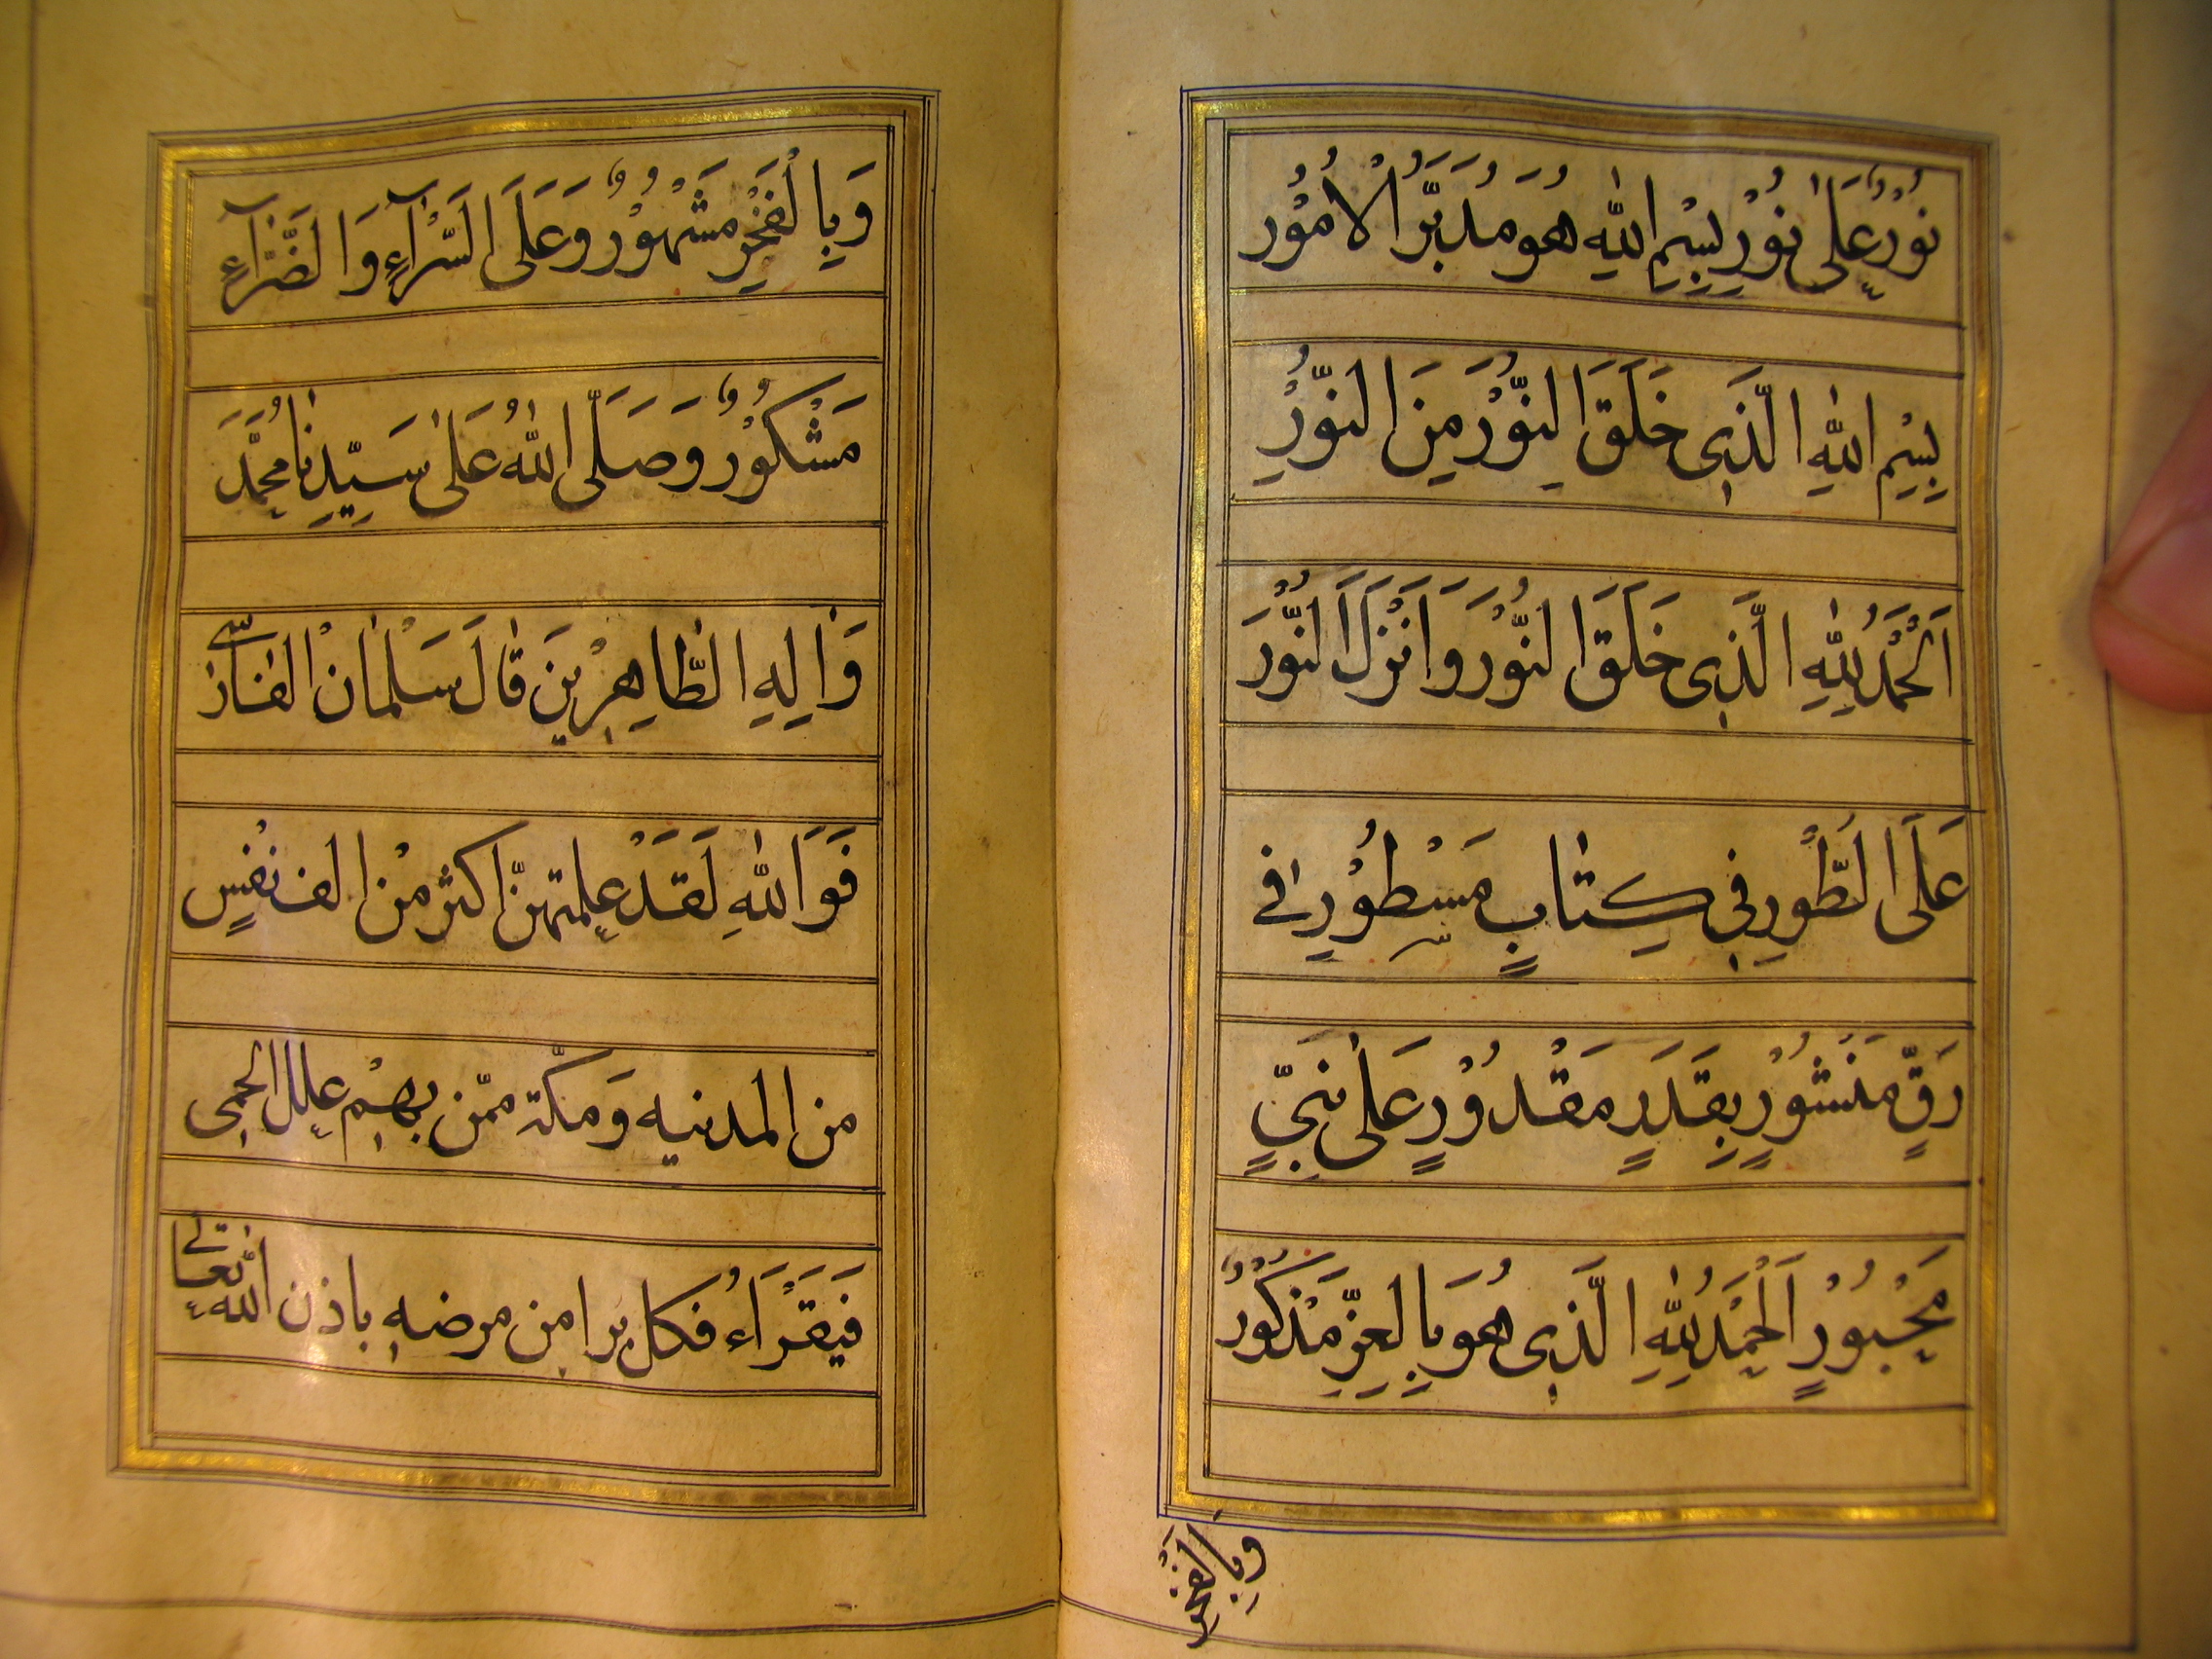 نُوْرٌ عَلىٰ نُوْرٍ بِسْمِ اللهِ هُوَ مُدَبِّرُ الْاُمُوْرِ
بِسْمِ اللهِ الَّذِى خَلَقَ النُّوْرَ مِنَ النُّوْرِ
اَلْحَمْدُ لِلّٰهِ الَّذِى خَلَقَ النُّوْرَ وَاَنْزَلَ النُّوْرَ
عَلَى الطُّورِ فِى كِتٰابٍ مَسْطُوْرٍ فِى
رَقٍّ مَنْشُوْرٍ بِقَدَرٍ مَقْدُوْرٍ عَلىٰ نَبِىٍّ
مَحْبُوْرٍ اَلْحَمْدُ لِلّٰهِ الَّذِى هُوَ بِالْعِزِّ مَذْكُوْرٌ
وَبِالْفَخْرِ
وَبِالْفَخْرِ مَشْهُوْرٌ وَعَلَى السَّرَّآءِ وَالضَّرَّآءِ
مَشْكُوْرٌ وَصَلَّى اللهُ عَلىٰ سَيِّدِنٰا مُحَمَّدٍ
وَاٰلِهِ الطّٰاهِرِيْنَ قٰالَ سَلْمٰان الْفٰارسى
فَوَ اللهِ لَقَدْ عَلِمتهنّ اكثر مِنْ الف نفْسٍ
من المدنيه وَ مكّة ممّن بِهِمْ عِلل الحمى
فَيَقْرَاءُ فكل برا مِن مرضهِ باذن الله تعالى